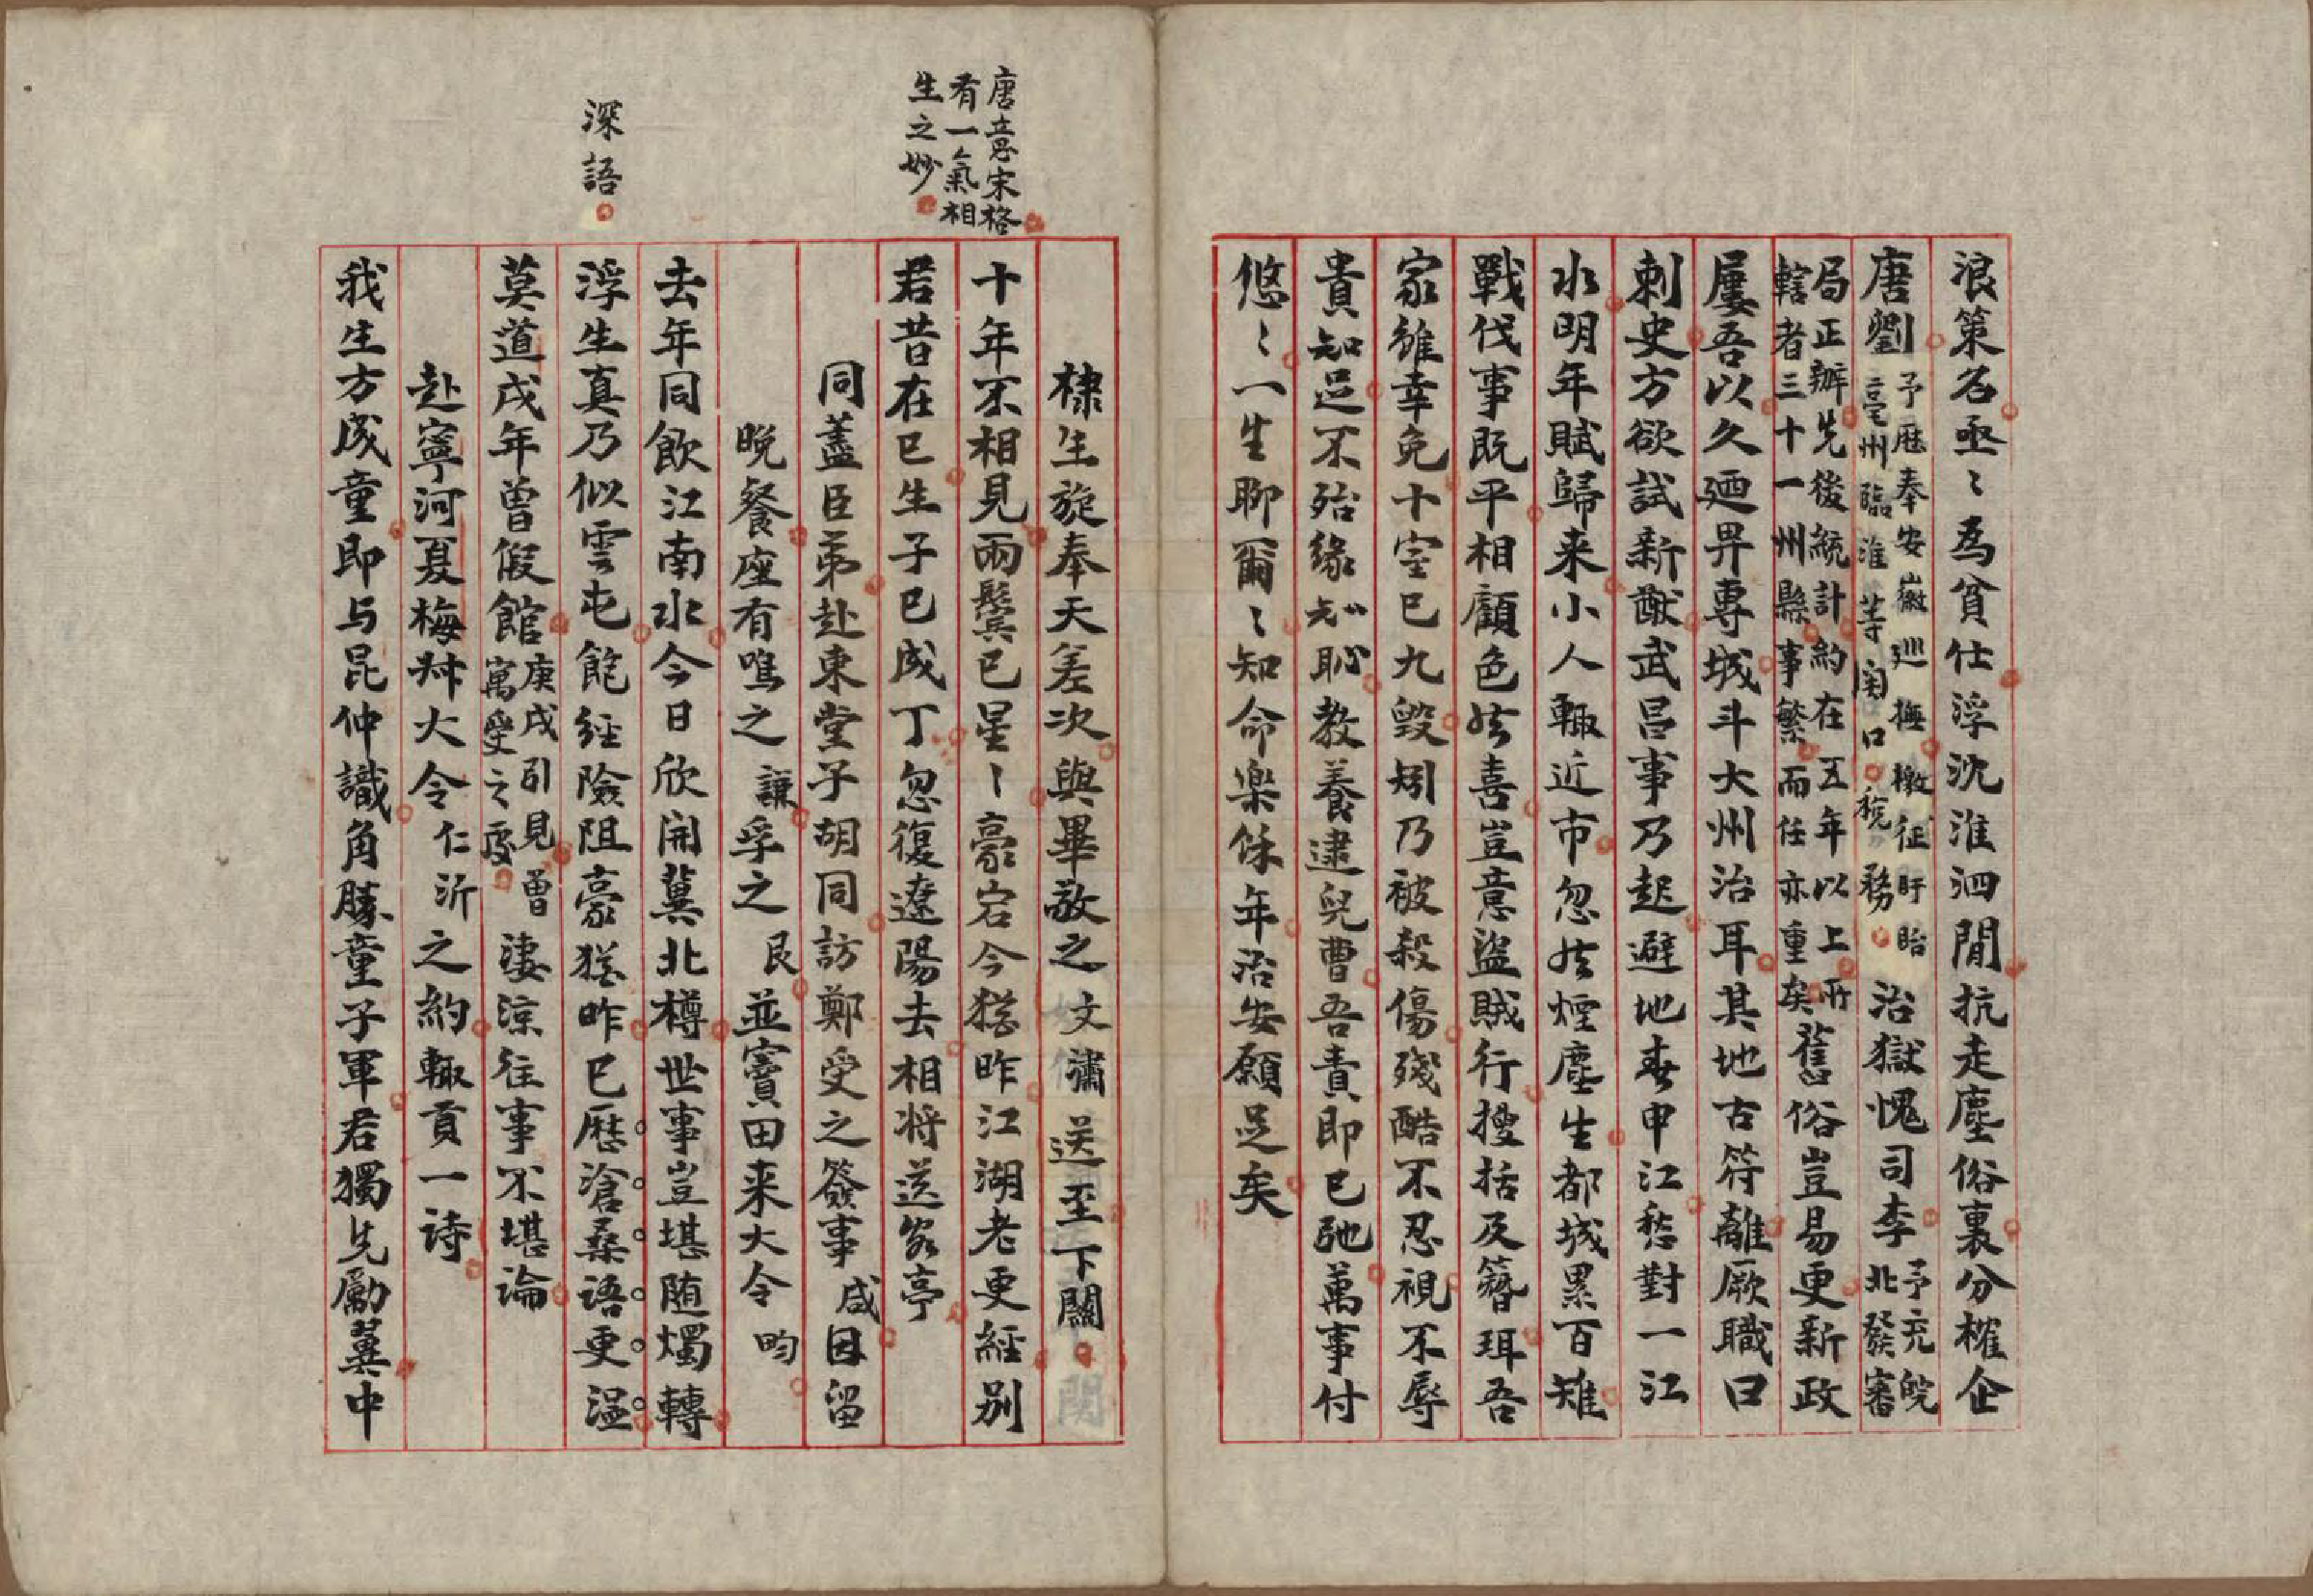 浪策名亟〻為貧仕浮沈淮泗間抗走塵俗裏分榷企
唐劉
予歷奉安徽巡撫檄征盱眙
亳州臨淮等関口稅務
治獄愧司李
予充皖
北發審
局正辦先後統計約在五年以上所
轄者三十一州縣事繁而任亦重矣
舊俗豈易更新政
屢吾以久廼畀專城斗大州治耳其地古符離厥職曰
刺史方欲試新猷武昌事乃起避地春申江愁對一江
水明年賦歸来小人輒近市忽焂煙塵生都城累百雉
戰伐事既平相顧色焂喜豈意盜賊行搜括及簪珥吾
家雖幸免十室已九毀矧乃被殺傷殘酷不忍視不辱
貴知足不殆緣知恥教養逮兒曹吾責即已弛萬事付
悠〻一生聊爾〻知命樂餘年治安願足矣
唐意宋格
有一氣相
生之妙
棣生旋奉天差次與畢敬之文潚送至下關
十年不相見兩鬢已星〻豪宕今猶昨江湖老更經別
君昔在巳生子已成丁忽復遼陽去相將送客亭
同蓋臣弟赴東堂子胡同訪鄭受之簽事咸因留
晚餐座有喁之謙孚之良並寶田来大令昀
去年同飲江南水今日欣開冀北樽世事豈堪随燭轉
深語
浮生真乃似雲屯飽經險阻豪猶昨已歷滄桑語更溫
莫道戌年曾假館
庚戌引見曾
寓受之處
淒涼往事不堪論
赴寧河夏梅叔大令仁沂之約輒貢一詩
我生方成童即与昆仲識角勝童子軍君獨先勵翼中